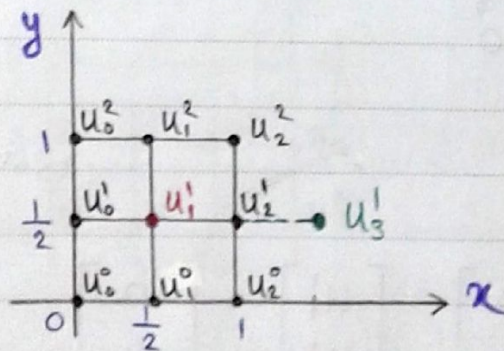 y
u₀² u₁² u₂²
1
1/2 u₀¹ u₁¹ u₂¹ u₃¹
u₀⁰ u₁⁰ u₂⁰
x
0 1/2 1